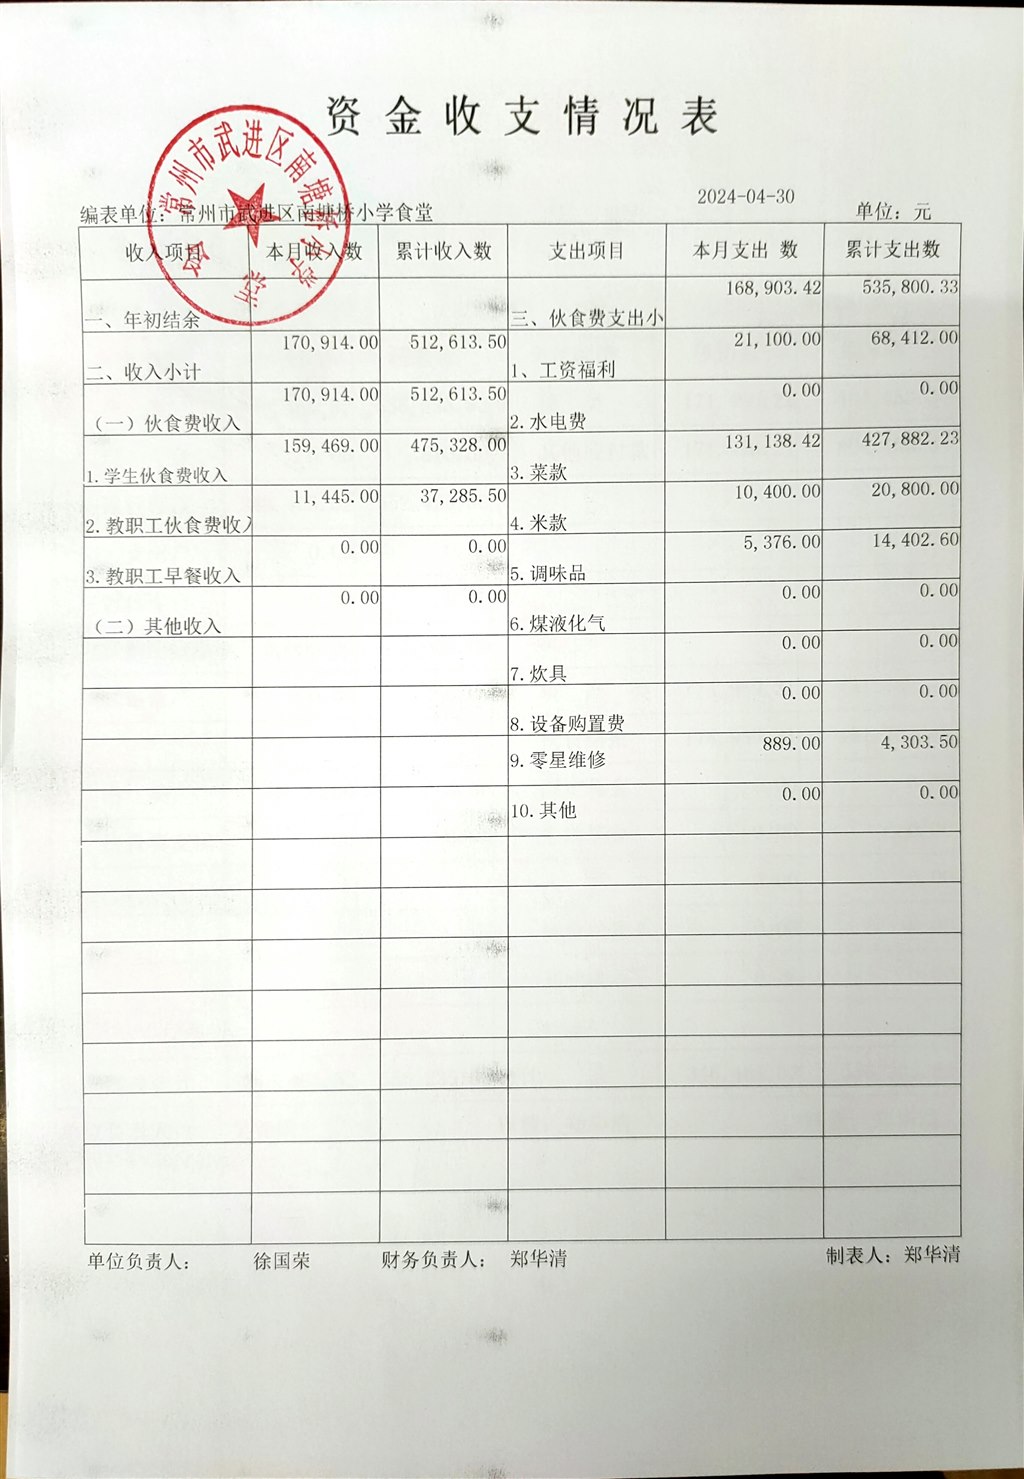 资金收支情况表
2024-04-30
编表单位：常州市武进区南塘桥小学食堂 单位：元
常州市武进区南塘桥小学
食堂
收入项目 本月收入数 累计收入数 支出项目 本月支出 数 累计支出数
一、年初结余 三、伙食费支出小 168,903.42 535,800.33
二、收入小计 170,914.00 512,613.50 1、工资福利 21,100.00 68,412.00
（一）伙食费收入 170,914.00 512,613.50 2.水电费 0.00 0.00
1.学生伙食费收入 159,469.00 475,328.00 3.菜款 131,138.42 427,882.23
2.教职工伙食费收入 11,445.00 37,285.50 4.米款 10,400.00 20,800.00
3.教职工早餐收入 0.00 0.00 5.调味品 5,376.00 14,402.60
（二）其他收入 0.00 0.00 6.煤液化气 0.00 0.00
7.炊具 0.00 0.00
8.设备购置费 0.00 0.00
9.零星维修 889.00 4,303.50
10.其他 0.00 0.00
单位负责人： 徐国荣 财务负责人： 郑华清 制表人：郑华清